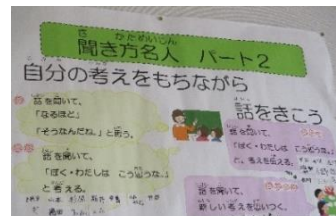 聞き方名人 パート2
自分の考えをもちながら
話をきこう
話を聞いて、
「なるほど」
「そうなんだね。」と思う。
話を聞いて、
「ぼく・わたしは こうだな。」
と考える。
話を聞いて、
「ぼく・わたしは こうこうな。」
と、考えを伝える。
話を聞いて、
新しい考えを思いつく。